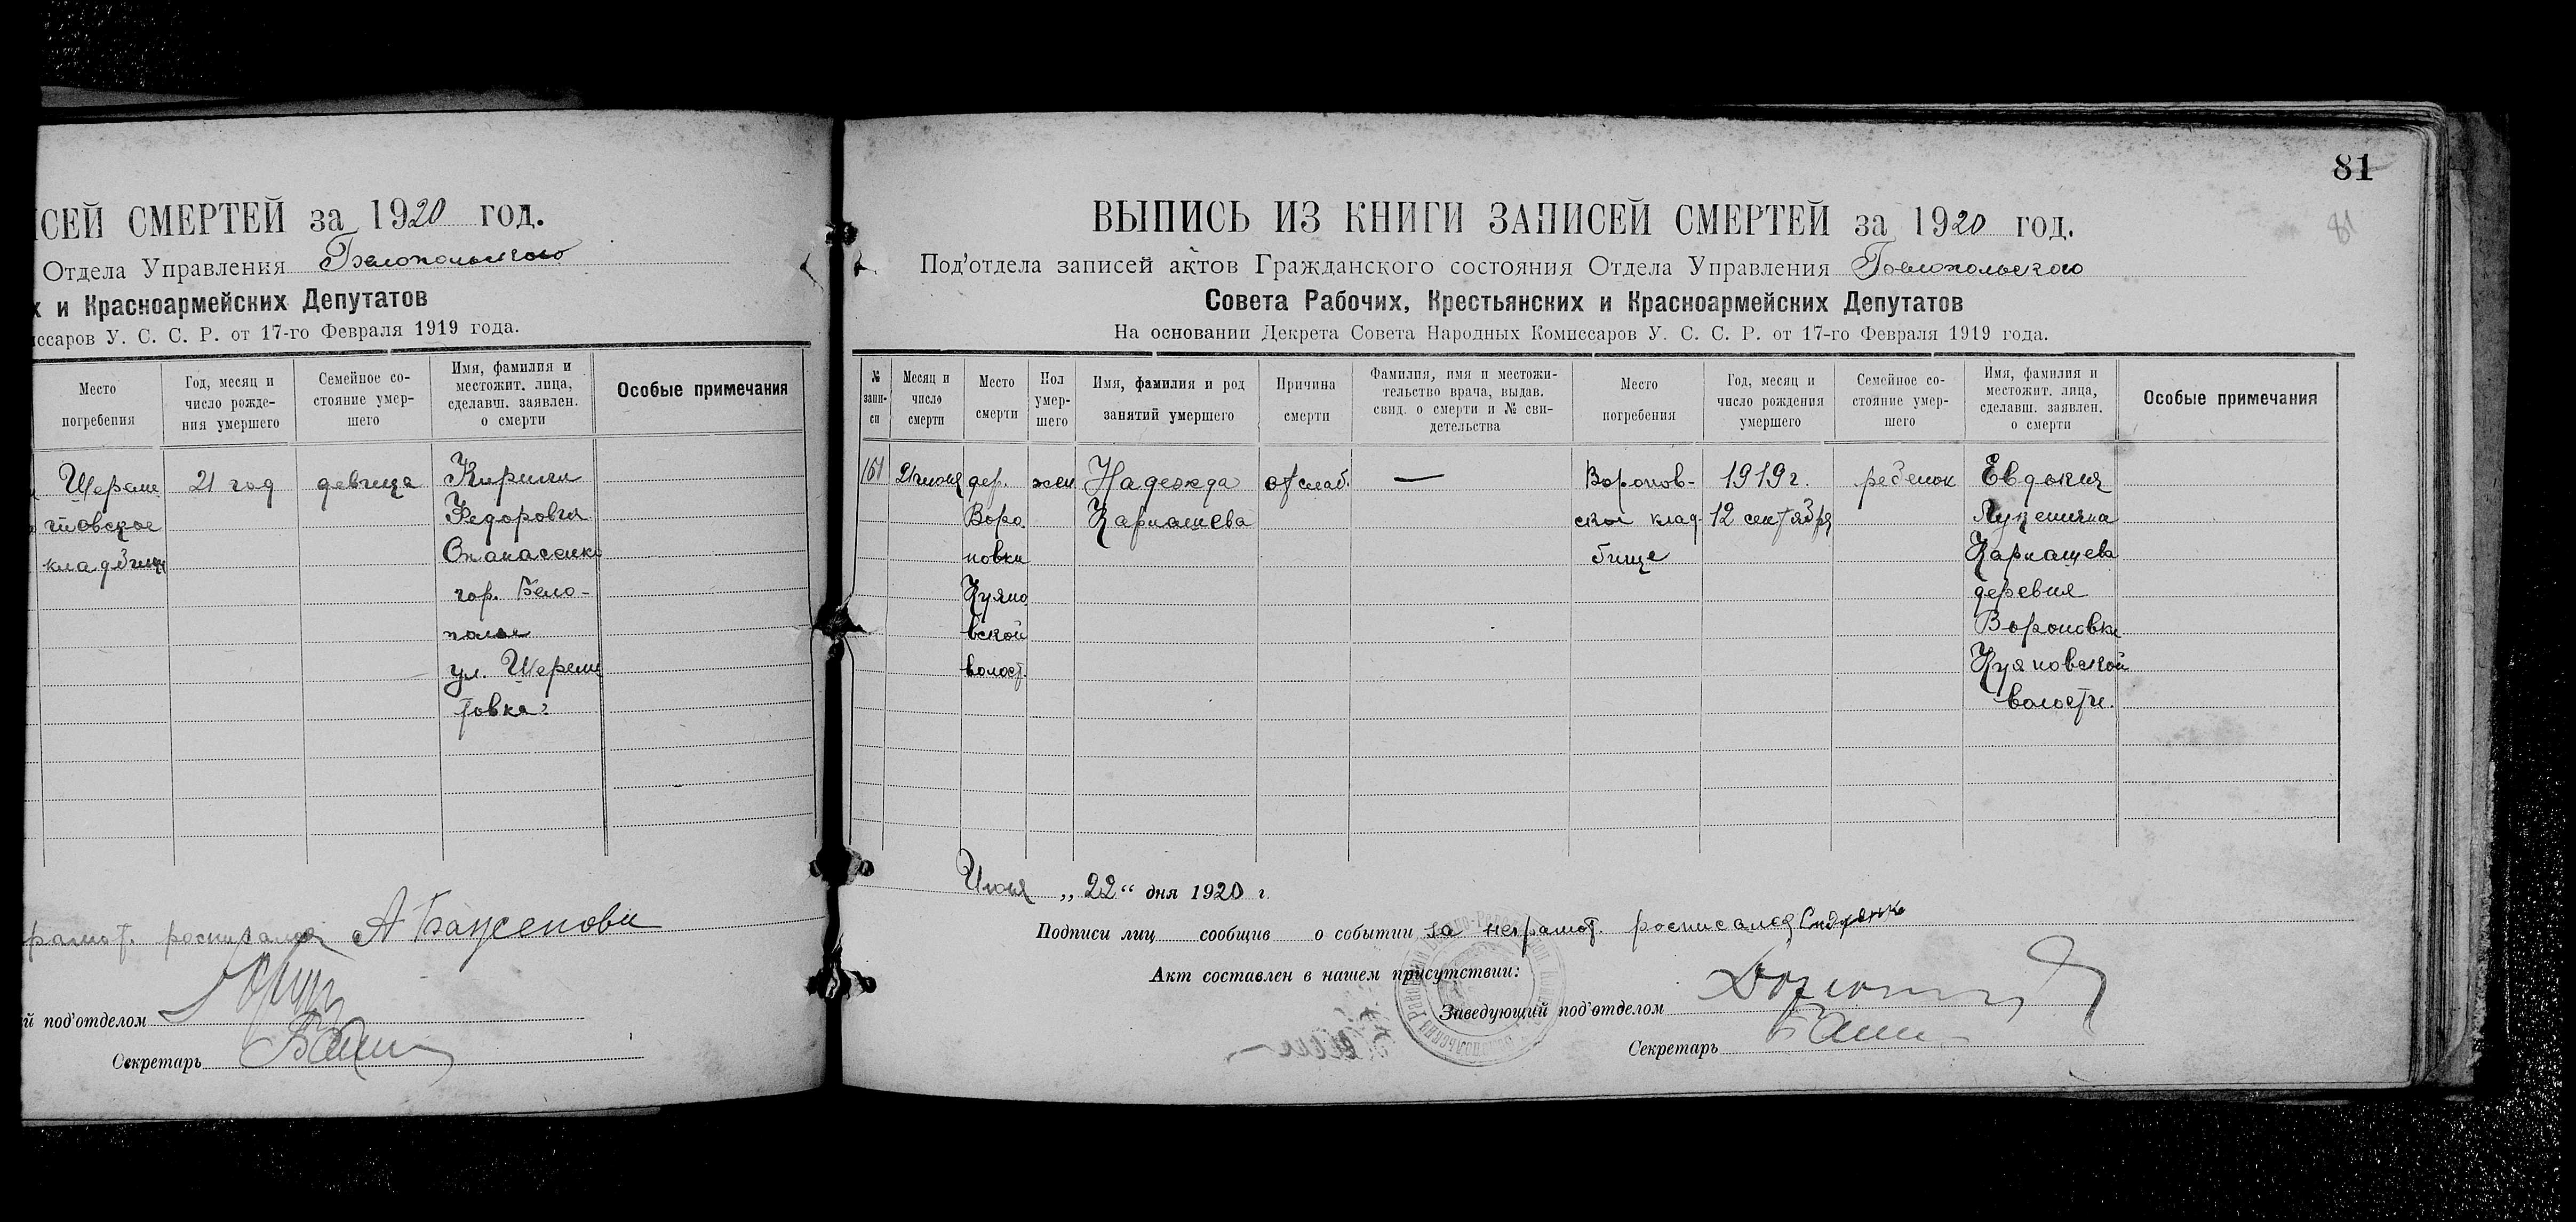 ИСЕЙ СМЕРТЕЙ за 1920 год.
Отдела Управления Белопольского
х и Красноармейских Депутатов
иссаров У. С. С. Р. от 17-го Февраля 1919 года.
Место погребения
Год, месяц и число рожде-ния умершего
Семейное со-стояние умер-шего
Имя, фамилия и местожит. лица, сделавш. заявлен. о смерти
Особые примечания
Шереме 21 год девица Кирилл
товское Федоровия
кладбище Опанасенко
гор. Бело-
полье
ул. Шереме
товка
рамот. росписался А Баженова
й под'отделом
Секретарь
81
81
ВЫПИСЬ ИЗ КНИГИ ЗАПИСЕЙ СМЕРТЕЙ за 1920 год.
Под'отдела записей актов Гражданского состояния Отдела Управления Белопольского
Совета Рабочих, Крестьянских и Красноармейских Депутатов
На основании Декрета Совета Народных Комиссаров У. С. С. Р. от 17-го Февраля 1919 года.
№ запи-си
Месяц и число смерти
Место смерти
Пол умер-шего
Имя, фамилия и род занятий умершего
Причина смерти
Фамилия, имя и местожи-тельство врача, выдав. свид. о смерти и № сви-детельства
Место погребения
Год, месяц и число рождения умершего
Семейное со-стояние умер-шего
Имя, фамилия и местожит. лица, сделавш. заявлен. о смерти
Особые примечания
151 21 июня дер. жен Надежда от слаб. — Воронов- 1919 г. ребенок Евдокия
Воро Карпашева ское клад 12 сентября
новки бище Карпащева
Куяно деревня
вской Вороновки
волост. Куяновской
волости.
Июня „22“ дня 1920 г.
Подписи лиц сообщив о событии за неграмот. росписался
Акт составлен в нашем присутствии:
Заведующий под'отделом
Секретарь